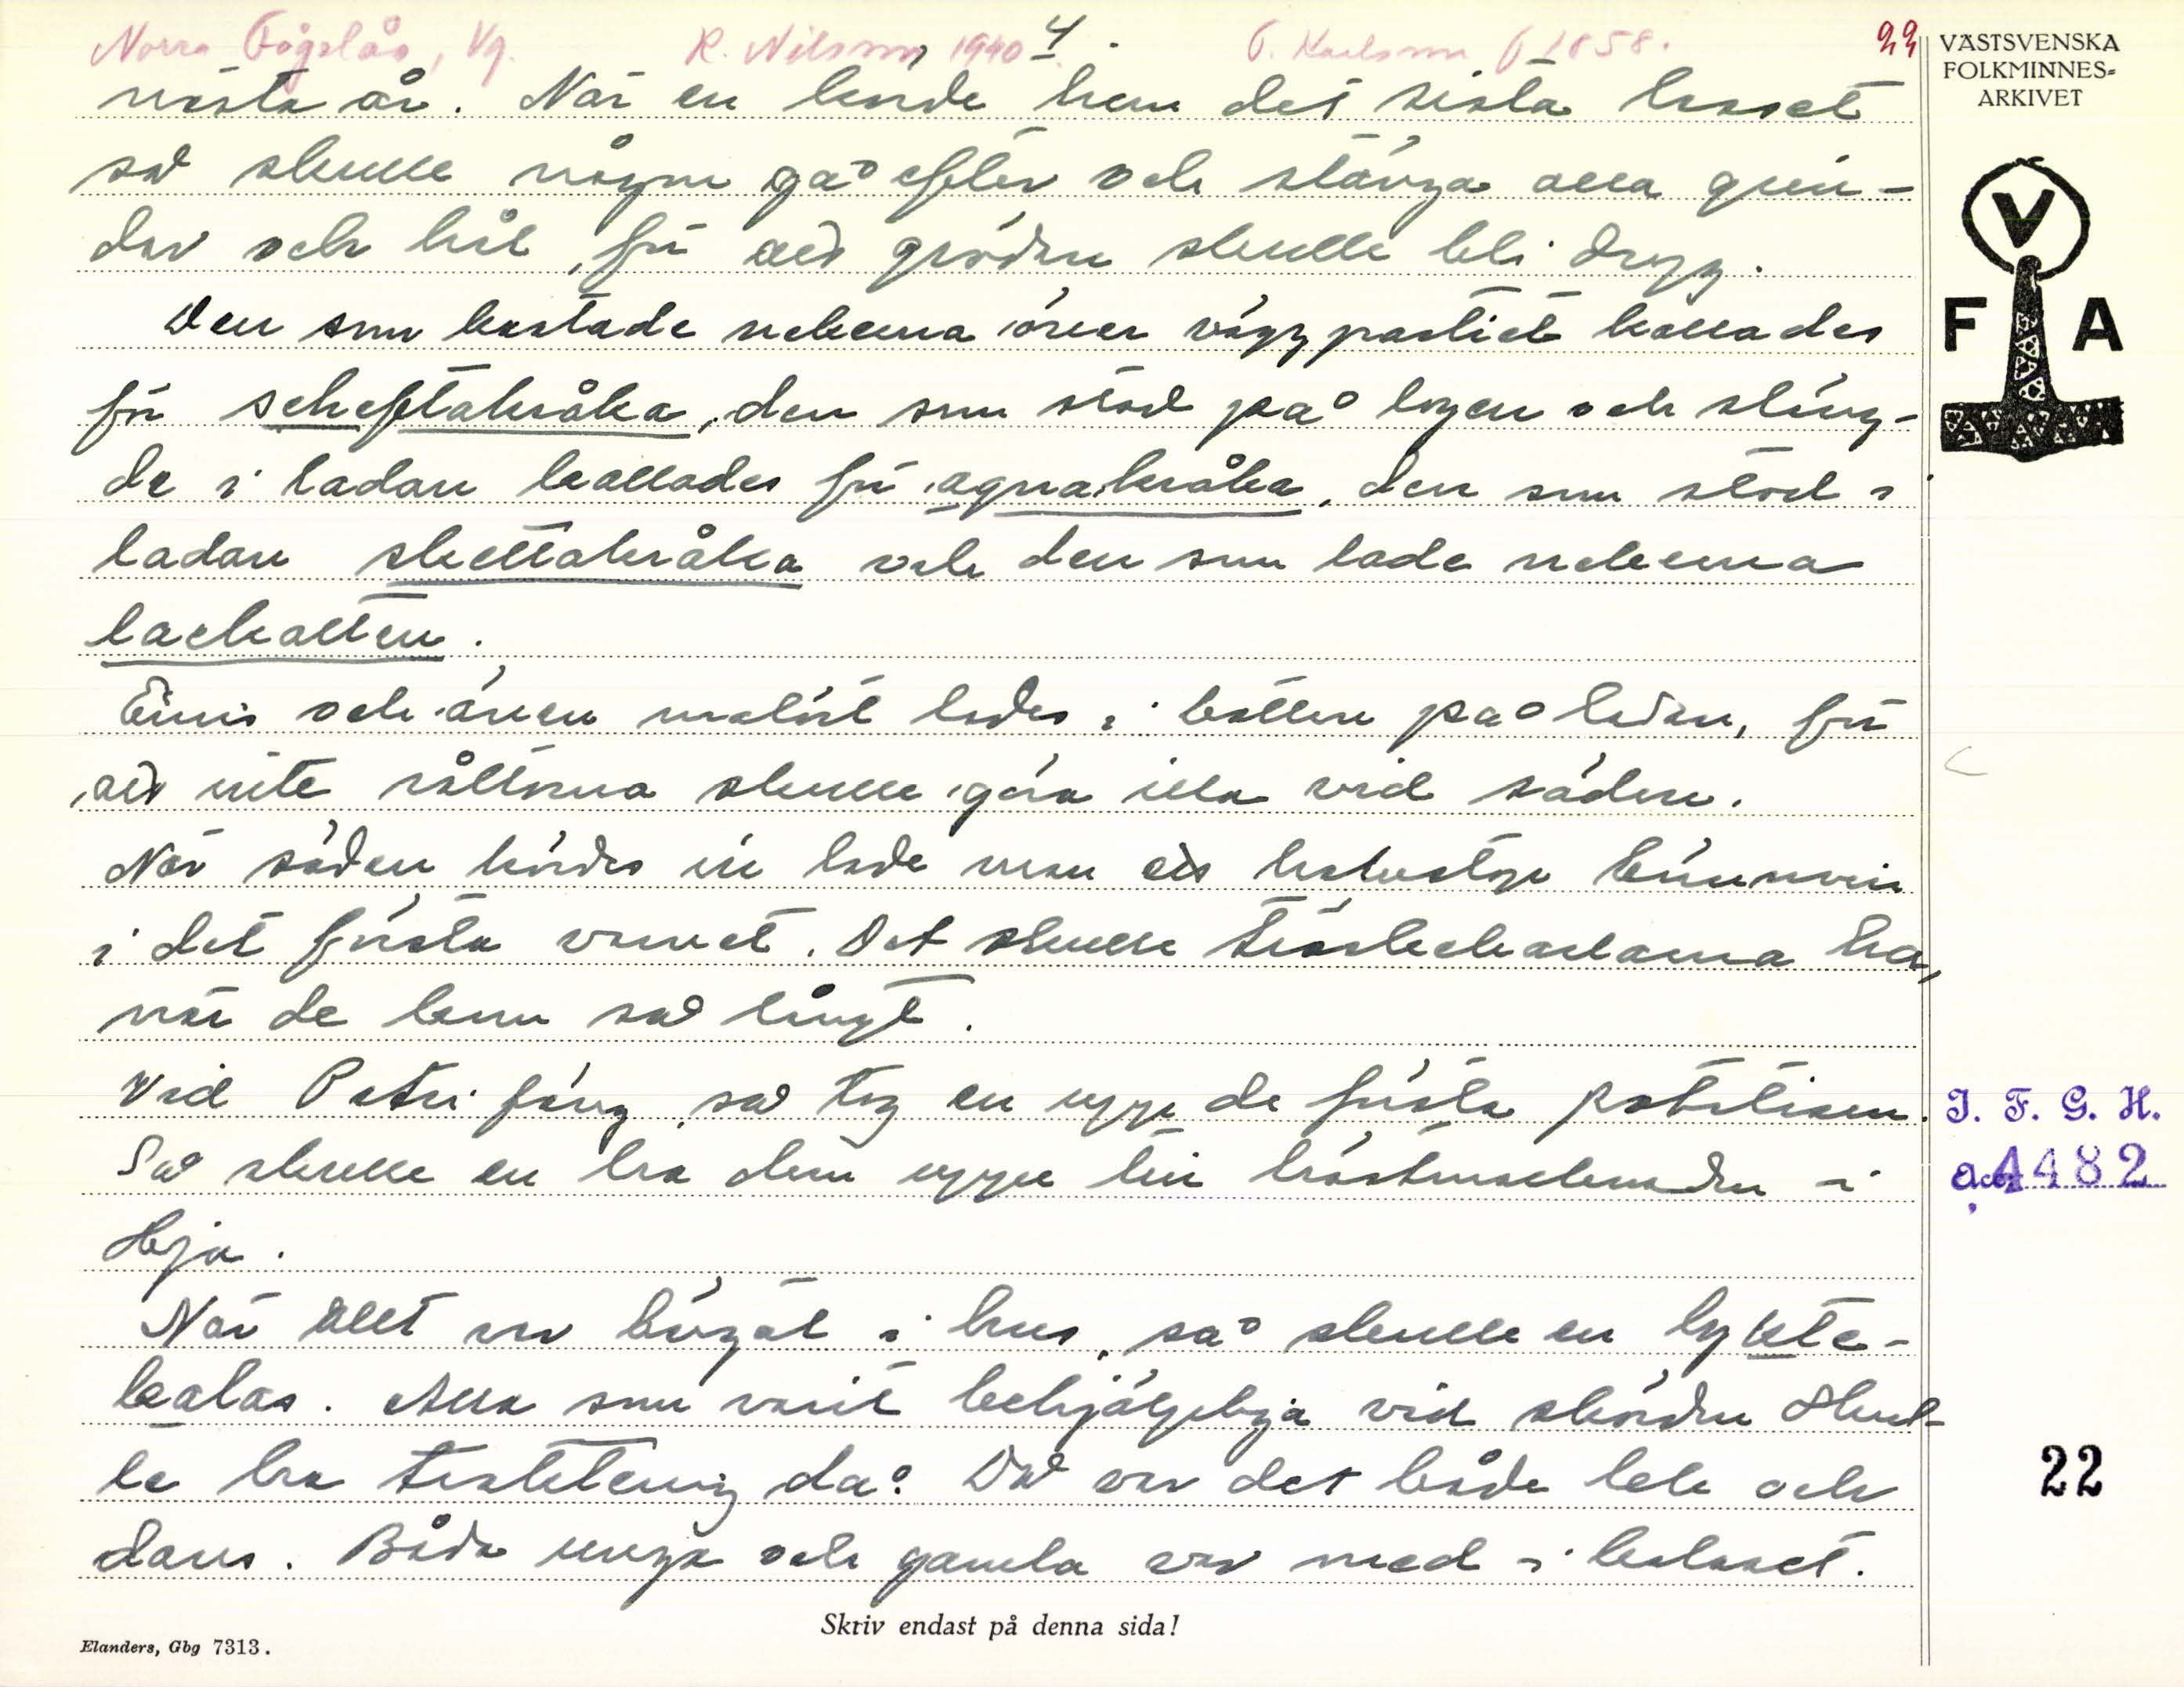 Norra Fågelås, Vg. K. Nilsson, 1940 4. G. Karlsson f 1858. 22
VÄSTSVENSKA
FOLKMINNES-
ARKIVET
nästa år. När en körde hem det sista lasset
så skulle någon gå efter och stänga alla grin-
dar och hål, för att gröden skulle bli dryg.
Den som kastade nekerna över väggpartiet kallades
för scheftakråka, den som stod på logen och släng-
de i ladan kallades för agnakråka, den som stod i
ladan skettakråka och den som lade nekerna
lackatten.
V
F A
Enris och även malört lades i botten på ladan, för
att inte råttorna skulle göra illa vid säden.
När säden kördes in lade man ett halvstop brännvin
i det första varvet. Det skulle tröskekarlarna ha,
när de kom så långt.
Vid Petri fäng, så tog en upp de första potatisen.
Så skulle en ha dem uppe till höstmarknaden i
Hjo.
När allt var bärgat i hus, så skulle en lykte-
kalas. Alla som varit behjälpliga vid skörden skul-
le ha traktering då. Då var det både lek och
dans. Både unga och gamla var med i kalaset.
I. F. G. H.
acc 4482
22
Skriv endast på denna sida!
Elanders, Gbg 7313.